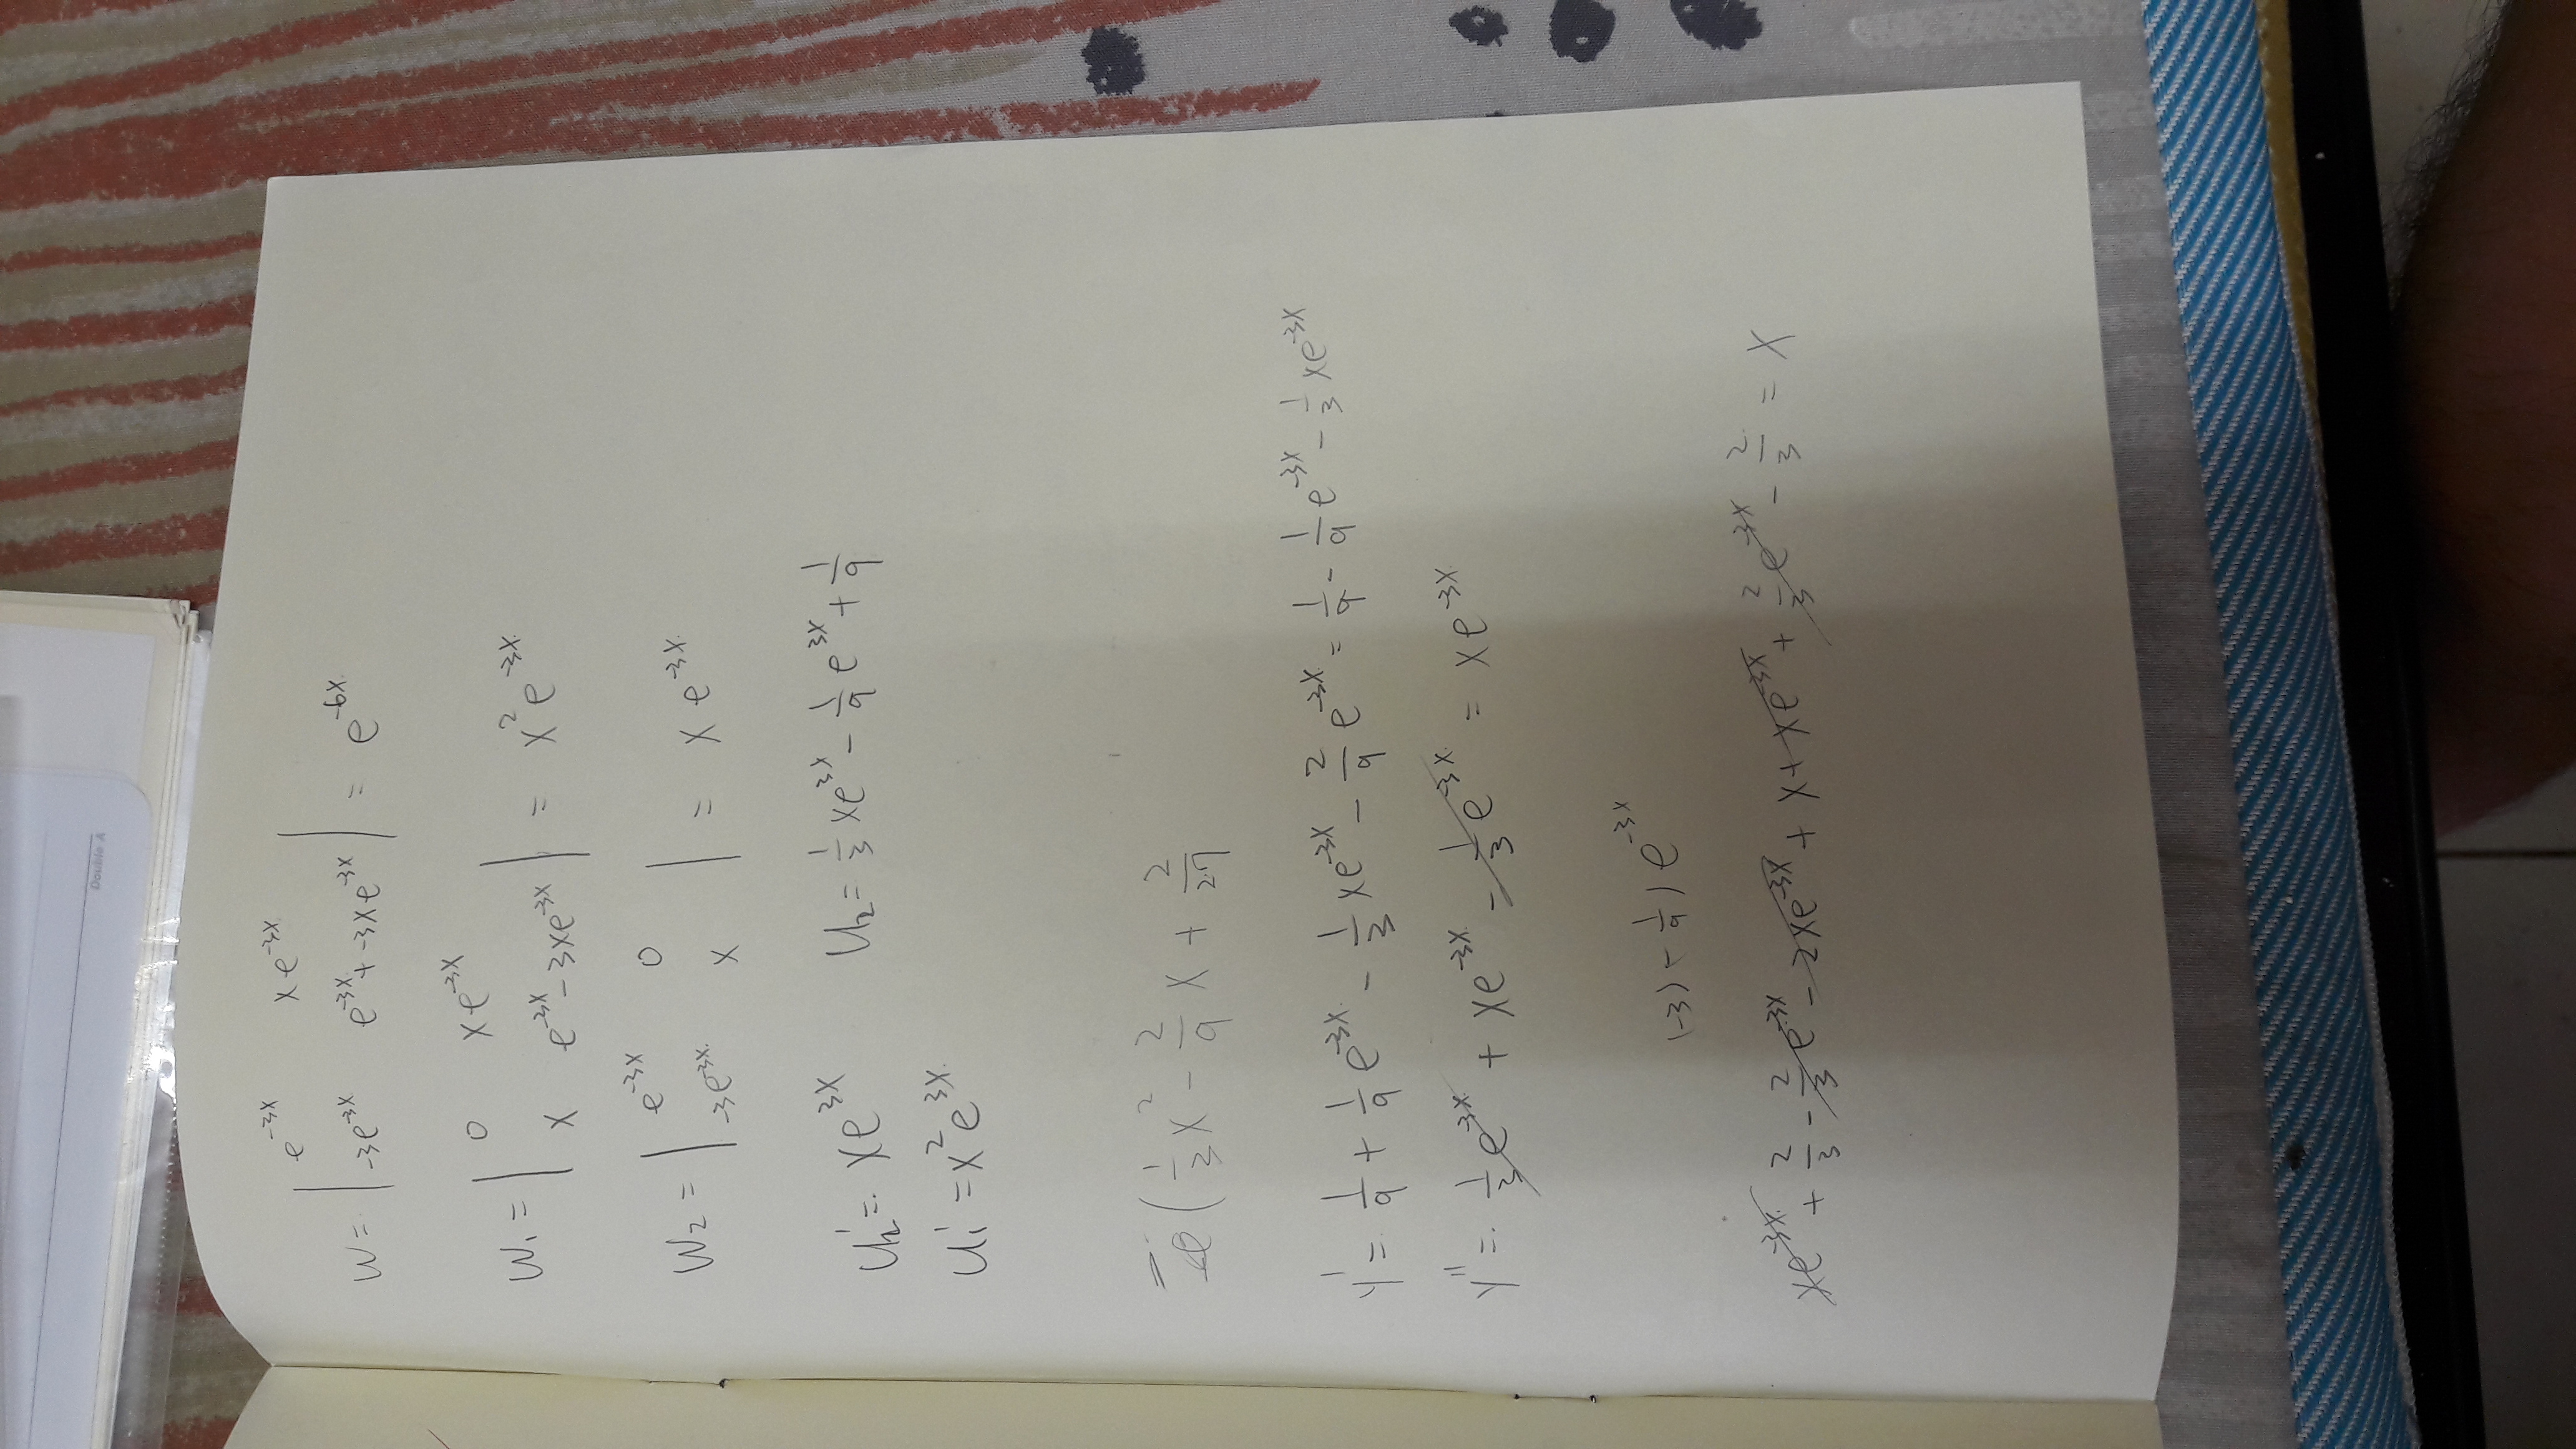 Double A
W = | e^{-3x} xe^{-3x} |
| -3e^{-3x} e^{-3x} + -3xe^{-3x} | = e^{-6x}
W₁ = | 0 xe^{-3x} |
| x e^{-3x} - 3xe^{-3x} | = x² e^{-3x}
W₂ = | e^{-3x} 0 |
| -3e^{-3x} x | = x e^{-3x}
u₂' = xe^{3x} u₂ = 1/3 xe^{3x} - 1/9 e^{3x} + 1/9
u₁' = x² e^{3x}
( 1/3 x² - 2/9 x + 2/27
y' = 1/9 + 1/9 e^{-3x} - 1/3 xe^{-3x} - 2/9 e^{-3x} = 1/9 - 1/9 e^{-3x} - 1/3 xe^{-3x}
y'' = 1/3 e^{-3x} + xe^{-3x} - 1/3 e^{-3x} = xe^{-3x}
(-3) - 1/9 ) e^{-3x}
xe^{-3x} + 2/3 - 2/3 e^{-3x} - 2xe^{-3x} + x + xe^{-3x} + 2/3 e^{-3x} - 2/3 = x